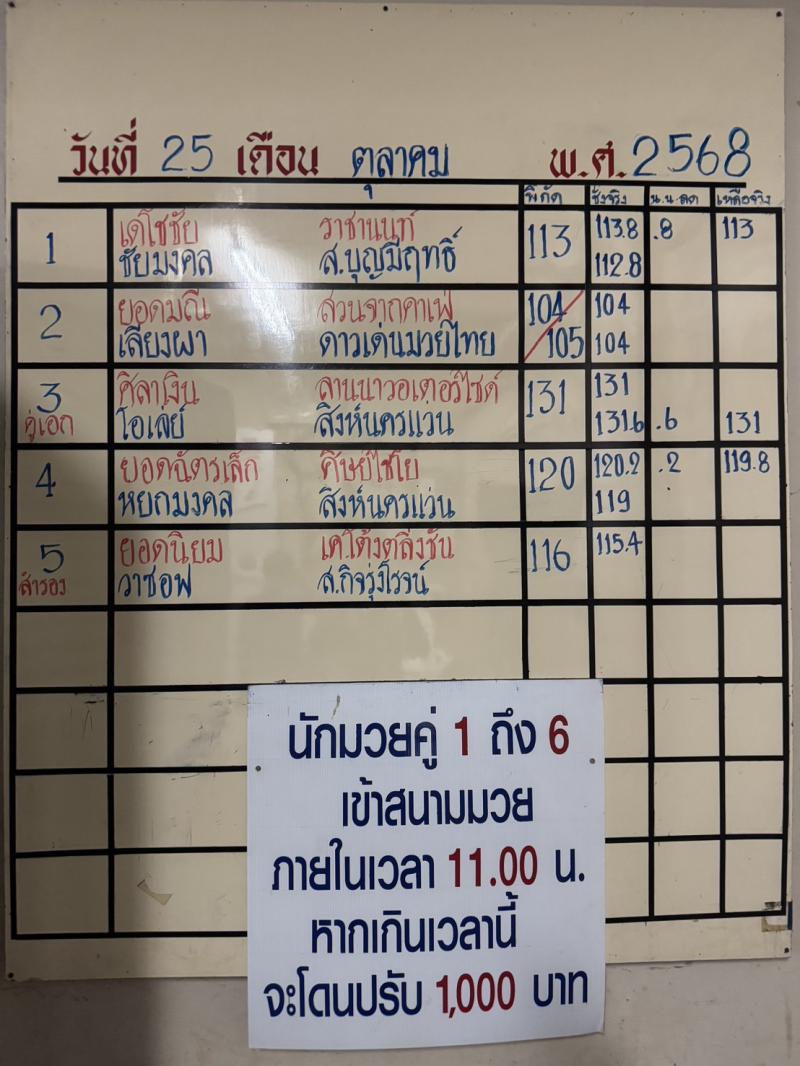 วันที่ 25 เดือน ตุลาคม พ.ศ. 2568
พิกัด ชั่งจริง น.น.ลด เหลือจริง
1 เดโชชัย ราชานนท์ 113 113.8 .8 113
ชัยมงคล ส.บุญมีฤทธิ์ 112.8
2 ยอดมณี สวนจากคาเฟ่ 104 104
เลียงผา ดาวเด่นมวยไทย 105 104
3 ศิลาเงิน ลานนาวอเตอร์ไซด์ 131 131
คู่เอก โอเล่ย์ สิงห์นครแว่น 131.6 .6 131
4 ยอดฉัตรเล็ก ศิษย์ไชโย 120 120.2 .2 119.8
หยกมงคล สิงห์นครแว่น 119
5 ยอดนิยม เค.โต้งตลิ่งชัน 116 115.4
สำรอง วาซอฟ ส.กิจรุ่งโรจน์
นักมวยคู่ 1 ถึง 6
เข้าสนามมวย
ภายในเวลา 11.00 น.
หากเกินเวลานี้
จะโดนปรับ 1,000 บาท